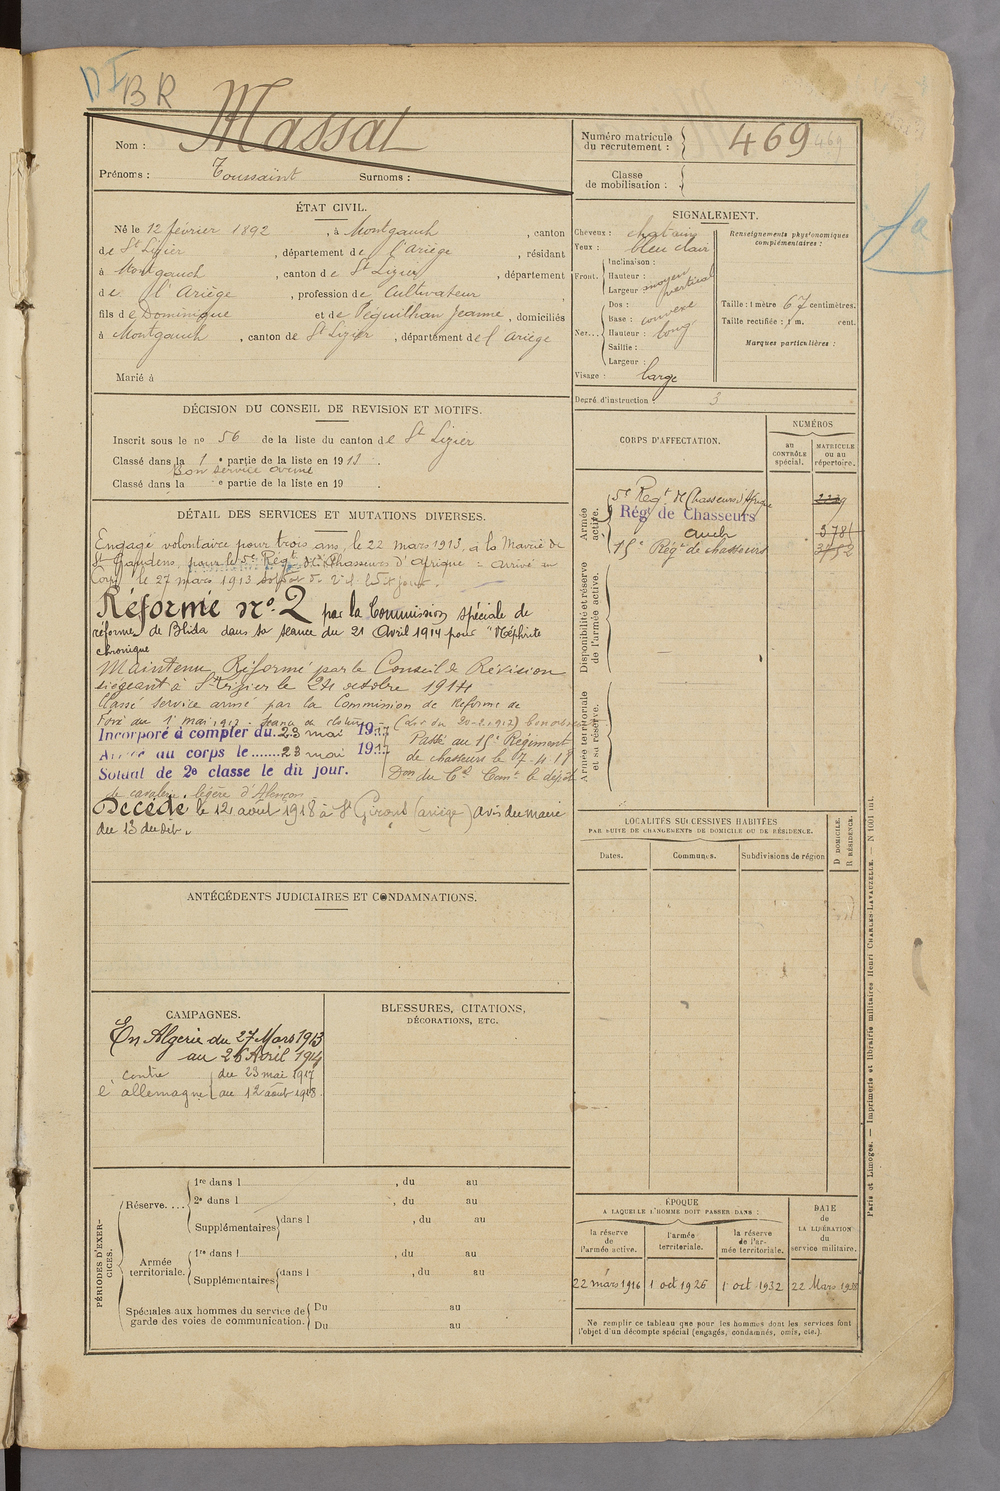 DI BR
Nom : Massat
Prénoms : Toussaint Surnoms :
Numéro matricule du recrutement : 469
469
Classe de mobilisation :
ÉTAT CIVIL.
Né le 12 février 1892, à Montgauch, canton
de St Lizier, département de l'Ariège, résidant
à Montgauch, canton de St Lizier, département
de l'Ariège, profession de Cultivateur
fils de Dominique et de Péguilhan Jeanne, domiciliés
à Montgauch, canton de St Lizier, département de l'Ariège
Marié à
SIGNALEMENT.
Cheveux : chatains
Yeux : bleu clair
Front. Inclinaison :
Hauteur : moyen
Largeur vertical
Nez... Dos : convexe
Base :
Hauteur : long
Saillie :
Largeur :
Visage : large
Renseignements physionomiques complémentaires :
Taille : 1 mètre 67 centimètres.
Taille rectifiée : 1 m. cent.
Marques particulières :
Degré d'instruction : 3
DÉCISION DU CONSEIL DE REVISION ET MOTIFS.
Inscrit sous le no 56 de la liste du canton de St Lizier
Classé dans la 1e partie de la liste en 1913.
Bon service armé
Classé dans la e partie de la liste en 19 .
DÉTAIL DES SERVICES ET MUTATIONS DIVERSES.
Engagé volontaire pour trois ans, le 22 mars 1913, à la Mairie de
St Gaudens, pour le 5e Régt de Chasseurs d'Afrique = arrivé au
Corps le 27 mars 1913 soldat de 2e cl. le dit jour.
Réformé no 2 par la Commission spéciale de
réforme de Blida dans sa séance du 21 Avril 1914 pour "Néphrite
chronique
Maintenu Réformé par le Conseil de Révision
siégeant à St Lizier le 24 octobre 1914
Classé service armé par la Commission de Réforme de
Foix du 1er mai 1917 - (Loi du 20-2-1917)
Incorporé à compter du 23 mai 1917
Arrivé au corps le........23 mai 1917
Soldat de 2e classe le dit jour.
Passé au 15e Régiment
de chasseurs le 7-4-18
Don du Cel Comt le dépôt
de cavalerie légère d'Alençon
Décédé le 12 août 1918 à St Girons (ariège) avis du maire
du 13 du dit.
CORPS D'AFFECTATION.
NUMÉROS
au CONTRÔLE spécial.
MATRICULE ou au répertoire.
Armée active.
5e Régt de Chasseurs d'Afrique
9 Régt de Chasseurs 3781
Auch
15e Régt de chasseurs 3752
Disponibilité et réserve de l'armée active.
Armée territoriale et sa réserve.
LOCALITÉS SUCCESSIVES HABITÉES
PAR SUITE DE CHANGEMENTS DE DOMICILE OU DE RÉSIDENCE.
Dates. Communes. Subdivisions de région
D DOMICILE. R RÉSIDENCE.
ANTÉCÉDENTS JUDICIAIRES ET CONDAMNATIONS.
CAMPAGNES.
En Algérie du 27 Mars 1913
au 26 Avril 1914
contre l'allemagne du 23 mai 1917
au 12 août 1918.
BLESSURES, CITATIONS,
DÉCORATIONS, ETC.
PÉRIODES D'EXERCICES.
Réserve.... 1re dans l , du au
2e dans l , du au
Supplémentaires dans l , du au
Armée territoriale. 1re dans l , du au
Supplémentaires dans l , du au
Spéciales aux hommes du service de garde des voies de communication. Du au
Du au
ÉPOQUE
A LAQUELLE L'HOMME DOIT PASSER DANS :
la réserve de l'armée active.
l'armée territoriale.
la réserve de l'armée territoriale.
DATE de LA LIBÉRATION du service militaire.
22 mars 1916 1 oct 1926 1 oct 1932 22 Mars 1938
Ne remplir ce tableau que pour les hommes dont les services font
l'objet d'un décompte spécial (engagés, condamnés, omis, etc.)
Paris et Limoges. — Imprimerie et librairie militaires Henri CHARLES-LAVAUZELLE. — N 1001 int.